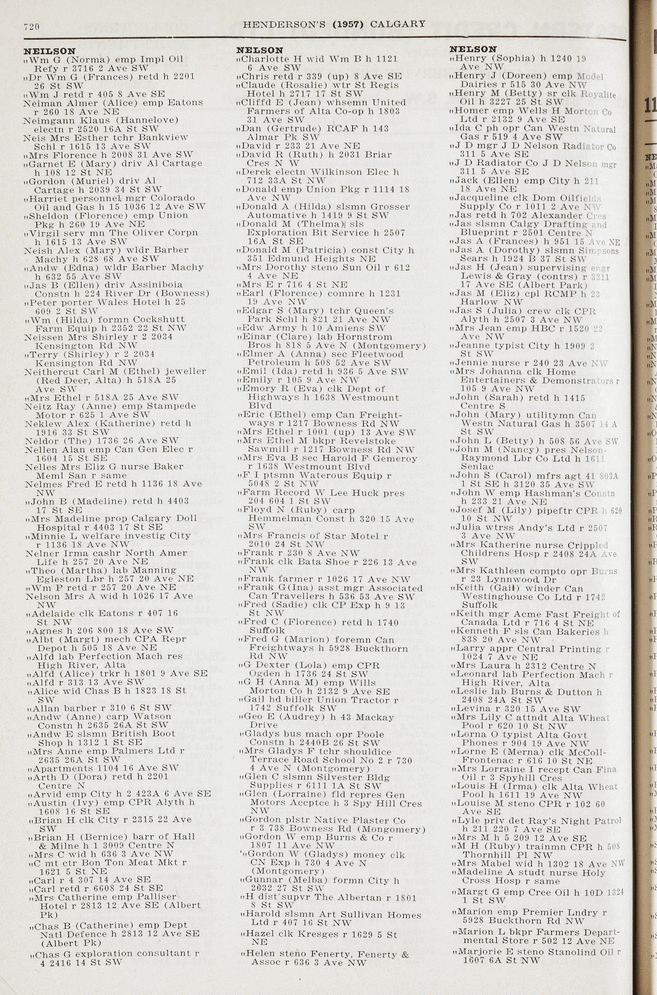 720
HENDERSON'S (1957) CALGARY
NEILSON
„Wm G (Norma) emp Impl Oil
Refy r 3716 2 Ave SW
„Dr Wm G (Frances) retd h 2201
26 St SW
„Wm J retd r 405 8 Ave SE
Neiman Almer (Alice) emp Eatons
r 260 18 Ave NE
Neimgann Klaus (Hannelove)
electn r 2520 16A St SW
Neis Mrs Esther tchr Bankview
Schl r 1615 13 Ave SW
„Mrs Florence h 2008 31 Ave SW
„Garnet E (Mary) driv Al Cartage
h 108 12 St NE
„Gordon (Muriel) driv Al
Cartage h 2039 34 St SW
„Harriet personnel mgr Colorado
Oil and Gas h 15 1036 12 Ave SW
„Sheldon (Florence) emp Union
Pkg h 260 19 Ave NE
„Virgil serv mn The Oliver Corpn
h 1615 13 Ave SW
Neish Alex (Mary) wldr Barber
Machy h 628 68 Ave SW
„Andw (Edna) wldr Barber Machy
h 632 55 Ave SW
„Jas B (Ellen) driv Assiniboia
Constn h 224 River Dr (Bowness)
„Peter porter Wales Hotel h 25
609 2 St SW
„Wm (Hilda) formn Cockshutt
Farm Equip h 2352 22 St NW
Neissen Mrs Shirley r 2 2034
Kensington Rd NW
„Terry (Shirley) r 2 2034
Kensington Rd NW
Neithercut Carl M (Ethel) jeweller
(Red Deer, Alta) h 518A 25
Ave SW
„Mrs Ethel r 518A 25 Ave SW
Neitz Ray (Anne) emp Stampede
Motor r 625 1 Ave SW
Neklew Alex (Katherine) retd h
1916 33 St SW
Neldor (The) 1736 26 Ave SW
Nellen Alan emp Can Gen Elec r
1604 15 St SE
Nelles Mrs Eliz G nurse Baker
Meml San r same
Nelmes Fred E retd h 1136 18 Ave
NW
„John B (Madeline) retd h 4403
17 St SE
„Mrs Madeline prop Calgary Doll
Hospital r 4403 17 St SE
„Minnie L welfare investig City
r 1136 18 Ave NW
Nelner Irma cashr North Amer
Life h 257 20 Ave NE
„Theo (Martha) lab Manning
Egleston Lbr h 257 20 Ave NE
„Wm P retd r 257 20 Ave NE
Nelson Mrs A wid h 1026 17 Ave
NW
„Adelaide clk Eatons r 407 16
St NW
„Agnes h 206 800 18 Ave SW
„Albt (Margt) mech CPA Repr
Depot h 505 18 Ave NE
„Alfd lab Perfection Mach res
High River, Alta
„Alfd (Alice) trkr h 1801 9 Ave SE
„Alfd r 313 13 Ave SW
„Alice wid Chas B h 1823 18 St
SW
„Allan barber r 310 6 St SW
„Andw (Anne) carp Watson
Constn h 2635 26A St SW
„Andw E slsmn British Boot
Shop h 1312 1 St SE
„Mrs Anne emp Palmers Ltd r
2635 26A St SW
„Apartments 1104 16 Ave SW
„Arth D (Dora) retd h 2201
Centre N
„Arvid emp City h 2 423A 6 Ave SE
„Austin (Ivy) emp CPR Alyth h
1608 16 St SE
„Brian H clk City r 2315 22 Ave
SW
„Brian H (Bernice) barr of Hall
& Milne h 1 3009 Centre N
„Mrs C wid h 636 3 Ave NW
„C mt ctr Bon Ton Meat Mkt r
1621 5 St NE
„Carl r 4 307 14 Ave SE
„Carl retd r 6608 24 St SE
„Mrs Catherine emp Palliser
Hotel r 2813 12 Ave SE (Albert
Pk)
„Chas B (Catherine) emp Dept
Natl Defence h 2813 12 Ave SE
(Albert Pk)
„Chas G exploration consultant r
4 2416 14 St SW
NELSON
„Charlotte H wid Wm B h 1121
6 Ave SW
„Chris retd r 339 (up) 8 Ave SE
„Claude (Rosalie) wtr St Regis
Hotel h 2717 17 St SW
„Cliffd E (Jean) whsemn United
Farmers of Alta Co-op h 1803
31 Ave SW
„Dan (Gertrude) RCAF h 143
Almar Pk SW
„David r 233 21 Ave NE
„David R (Ruth) h 2031 Briar
Cres N W
„Derek electn Wilkinson Elec h
712 33A St NW
„Donald emp Union Pkg r 1114 18
Ave NW
„Donald A (Hilda) slsmn Grosser
Automotive h 1419 9 St SW
„Donald M (Thelma) sls
Exploration Bit Service h 2507
16A St SE
„Donald M (Patricia) const City h
351 Edmund Heights NE
„Mrs Dorothy steno Sun Oil r 612
4 Ave NE
„Mrs E r 716 4 St NE
„Earl (Florence) comnre h 1231
19 Ave NW
„Edgar S (Mary) tchr Queen's
Park Schl h 821 21 Ave NW
„Edw Army h 10 Amiens SW
„Einar (Clare) lab Hornstrom
Bros h 818 5 Ave N (Montgomery)
„Elmer A (Anna) sec Fleetwood
Petroleum h 508 52 Ave SW
„Emil (Ida) retd h 936 5 Ave SW
„Emily r 105 9 Ave NW
„Emory R (Eva) clk Dept of
Highways h 1638 Westmount
Blvd
„Eric (Ethel) emp Can Freight-
ways r 1217 Bowness Rd NW
„Mrs Ethel r 1001 (up) 13 Ave SW
„Mrs Ethel M bkpr Revelstoke
Sawmill r 1217 Bowness Rd NW
„Mrs Eva B sec Harold F Gemeroy
r 1638 Westmount Blvd
„F I ptsmn Waterous Equip r
5048 2 St NW
„Farm Record W Lee Huck pres
204 604 1 St SW
„Floyd N (Ruby) carp
Hemmelman Const h 320 15 Ave
SW
„Mrs Francis of Star Motel r
2010 24 St NW
„Frank r 230 8 Ave NW
„Frank clk Bata Shoe r 226 13 Ave
NW
„Frank farmer r 1026 17 Ave NW
„Frank G(Ina) asst mgr Associated
Can Travellers h 536 53 Ave SW
„Fred (Sadie) clk CP Exp h 9 13
St NW
„Fred C (Florence) retd h 1740
Suffolk
„Fred G (Marion) foremn Can
Freightways h 5928 Buckthorn
Rd NW
„G Dexter (Lola) emp CPR
Ogden h 1736 24 St SW
„G H (Anna M) emp Wills
Morton Co h 2132 9 Ave SE
„Gail hd biller Union Tractor r
1742 Suffolk SW
„Geo E (Audrey) h 43 Mackay
Drive
„Gladys bus mach opr Poole
Constn h 2440B 26 St SW
„Mrs Gladys F tchr shouldice
Terrace Road School No 2 r 730
4 Ave N (Montgomery)
„Glen C slsmn Silvester Bldg
Supplies r 6111 1A St SW
„Glen (Lorraine) fld repres Gen
Motors Accptce h 3 Spy Hill Cres
NW
„Gordon plstr Native Plaster Co
r 3 738 Bowness Rd (Mongomery)
„Gordon W emp Burns & Co r
1807 11 Ave NW
„Gordon W (Gladys) money clk
CN Exp h 730 4 Ave N
(Montgomery)
„Gunnar (Melba) formn City h
2032 27 St SW
„H dist supvr The Albertan r 1801
8 St SW
„Harold slsmn Art Sullivan Homes
Ltd r 407 16 St NW
„Hazel clk Kresges r 1629 5 St
NE
„Helen steno Fenerty, Fenerty &
Assoc r 636 3 Ave NW
NELSON
„Henry (Sophia) h 1240 19
Ave NW
„Henry J (Doreen) emp Model
Dairies r 515 30 Ave NW
„Henry M (Betty) sr clk Royalite
Oil h 3227 25 St SW
„Homer emp Wells H Morton Co
Ltd r 2132 9 Ave SE
„Ida C ph opr Can Westn Natural
Gas r 519 4 Ave SW
„J D mgr J D Nelson Radiator Co
311 5 Ave SE
„J D Radiator Co J D Nelson mgr
311 5 Ave SE
„Jack (Ellen) emp City h 211
18 Ave NE
„Jacqueline clk Dom Oilfields
Supply Co r 1011 2 Ave NW
„Jas retd h 702 Alexander Cres
„Jas slsmn Calgy Drafting and
Blueprint r 2501 Centre N
„Jas A (Frances) h 951 15 Ave NE
„Jas A (Dorothy) slsmn Simpsons
Sears h 1924 B 37 St SW
„Jas H (Jean) supervising engr
Lewis & Gray (contrs) r 3211
17 Ave SE (Albert Park)
„Jas M (Eliz) cpl RCMP h 23
Harlow NW
„Jas S (Julia) crew clk CPR
Alyth h 2507 3 Ave NW
„Mrs Jean emp HBC r 1520 22
Ave NW
„Jeanne typist City h 1909 2
St SW
„Jennie nurse r 240 23 Ave NW
„Mrs Johanna clk Home
Entertainers & Demonstrators r
105 9 Ave NW
„John (Sarah) retd h 1415
Centre S
„John (Mary) utilitymn Can
Westn Natural Gas h 3507 14 A
St SW
„John L (Betty) h 508 56 Ave SW
„John M (Nancy) pres Nelson-
Raymond Lbr Co Ltd h 1611
Senlac
„John S (Carol) mfrs agt 41 805A
1 St SE h 3120 35 Ave SW
„John W emp Hashman's Constn
h 233 21 Ave NE
„Josef M (Lily) pipeftr CPR h 620
10 St NW
„Julia wtrss Andy's Ltd r 2507
3 Ave NW
„Mrs Katherine nurse Crippled
Childrens Hosp r 2408 24A Ave
SW
„Mrs Kathleen compto opr Burns
r 23 Lynnwood Dr
„Keith (Gail) winder Can
Westinghouse Co Ltd r 1742
Suffolk
„Keith mgr Acme Fast Freight of
Canada Ltd r 716 4 St NE
„Kenneth F sls Can Bakeries h
838 20 Ave NW
„Larry appr Central Printing r
1024 7 Ave NE
„Mrs Laura h 2312 Centre N
„Leonard lab Perfection Mach r
High River, Alta
„Leslie lab Burns & Dutton h
2408 24A St SW
„Levina r 320 15 Ave SW
„Mrs Lily C attndt Alta Wheat
Pool r 620 10 St NW
„Lorna O typist Alta Govt
Phones r 904 19 Ave NW
„Lorne E (Merna) clk McColl-
Frontenac r 616 10 St NE
„Mrs Lorraine I recept Can Fina
Oil r 3 Spyhill Cres
„Louis H (Irma) clk Alta Wheat
Pool h 1611 19 Ave NW
„Louise M steno CPR r 102 60
Ave SE
„Lyle priv det Ray's Night Patrol
h 211 220 7 Ave SE
„Mrs M h 5 209 12 Ave SE
„M H (Ruby) trainmn CPR h 508
Thornhill Pl NW
„Mrs Mabel wid h 1302 18 Ave NW
„Madeline A studt nurse Holy
Cross Hosp r same
„Margt G emp Cree Oil h 10D 1324
1 St SW
„Marion emp Premier Lndry r
5928 Buckthorn Rd NW
„Marion L bkpr Farmers Depart-
mental Store r 502 12 Ave NE
„Marjorie E steno Stanolind Oil r
1607 6A St NW